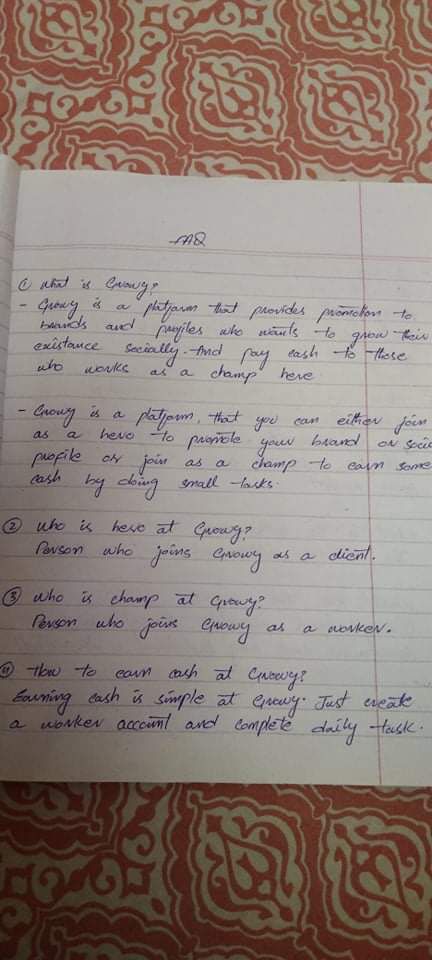 FAQ
① What is Growy?
- Growy is a platform that provides promotion to
brands and profiles who wants to grow their
existance socially. And pay cash to those
who works as a champ here
- Growy is a platform, that you can either join
as a hero to promote your brand or soci
profile or join as a champ to earn some
cash by doing small tasks.
② Who is hero at Growy?
Person who joins Growy as a client.
③ Who is champ at Growy?
Person who joins Growy as a worker.
④ How to earn cash at Growy?
Earning cash is simple at Growy. Just create
a worker account and complete daily task.